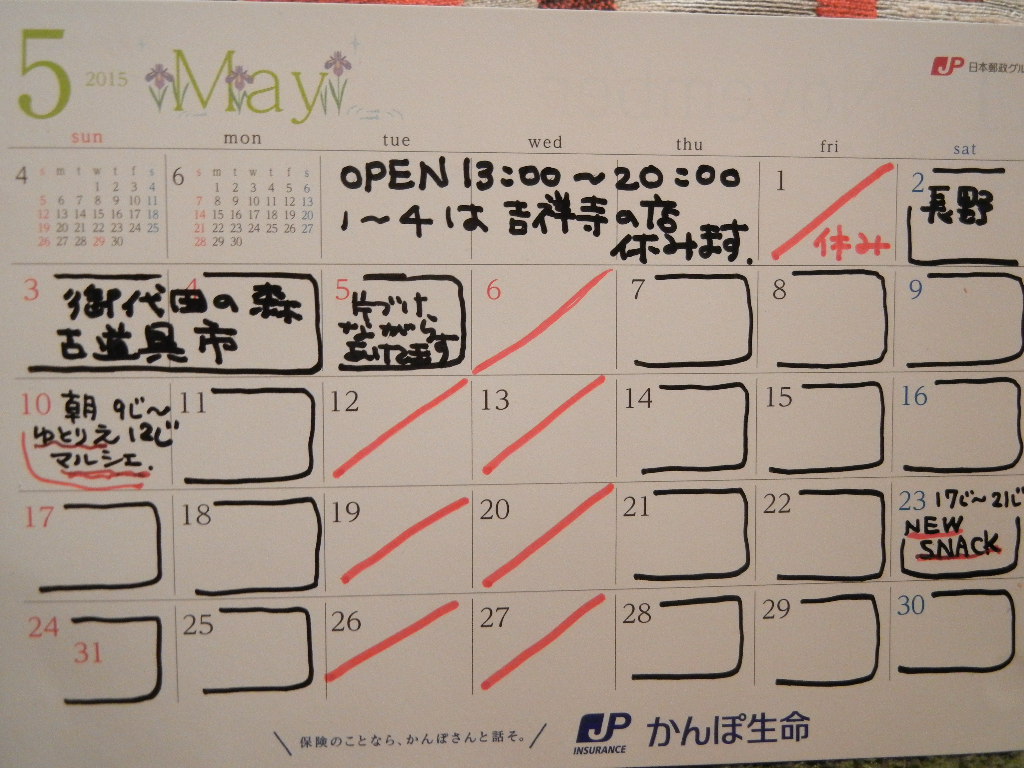 5 2015 May
JP 日本郵政グル
sun mon tue wed thu fri sat
4
s m t w t f s
1 2 3 4
5 6 7 8 9 10 11
12 13 14 15 16 17 18
19 20 21 22 23 24 25
26 27 28 29 30
6
s m t w t f s
1 2 3 4 5 6
7 8 9 10 11 12 13
14 15 16 17 18 19 20
21 22 23 24 25 26 27
28 29 30
OPEN 13:00〜20:00
1〜4は吉祥寺の店
休みます.
1
休み
2
長野
3 4
御代田の森
古道具市
5
片づけ
ながら
あけてます
6
7
8
9
10 朝 9じ〜
ゆとりえ 12じ
マルシェ.
11
12
13
14
15
16
17
18
19
20
21
22
23 17じ〜21じ
NEW
SNACK
24
31
25
26
27
28
29
30
保険のことなら、かんぽさんと話そ。
JP INSURANCE かんぽ生命